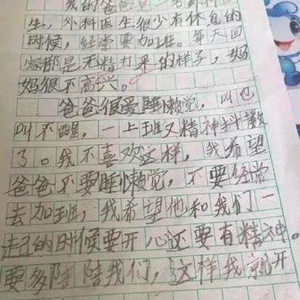 我的爸爸是一名外科
生，外科医生很少有休息的
时候，经常要加班。每天回
家都是无精打采的样子，妈
妈很不高兴。
爸爸很爱睡懒觉，叫也
叫不醒，一上班又精神抖擞
了。我不喜欢这样，我希望
爸爸不要睡懒觉，不要经常
去加班，我希望他和我们一
起的时候要开心还要有精神。
要多陪陪我们，这样我就开